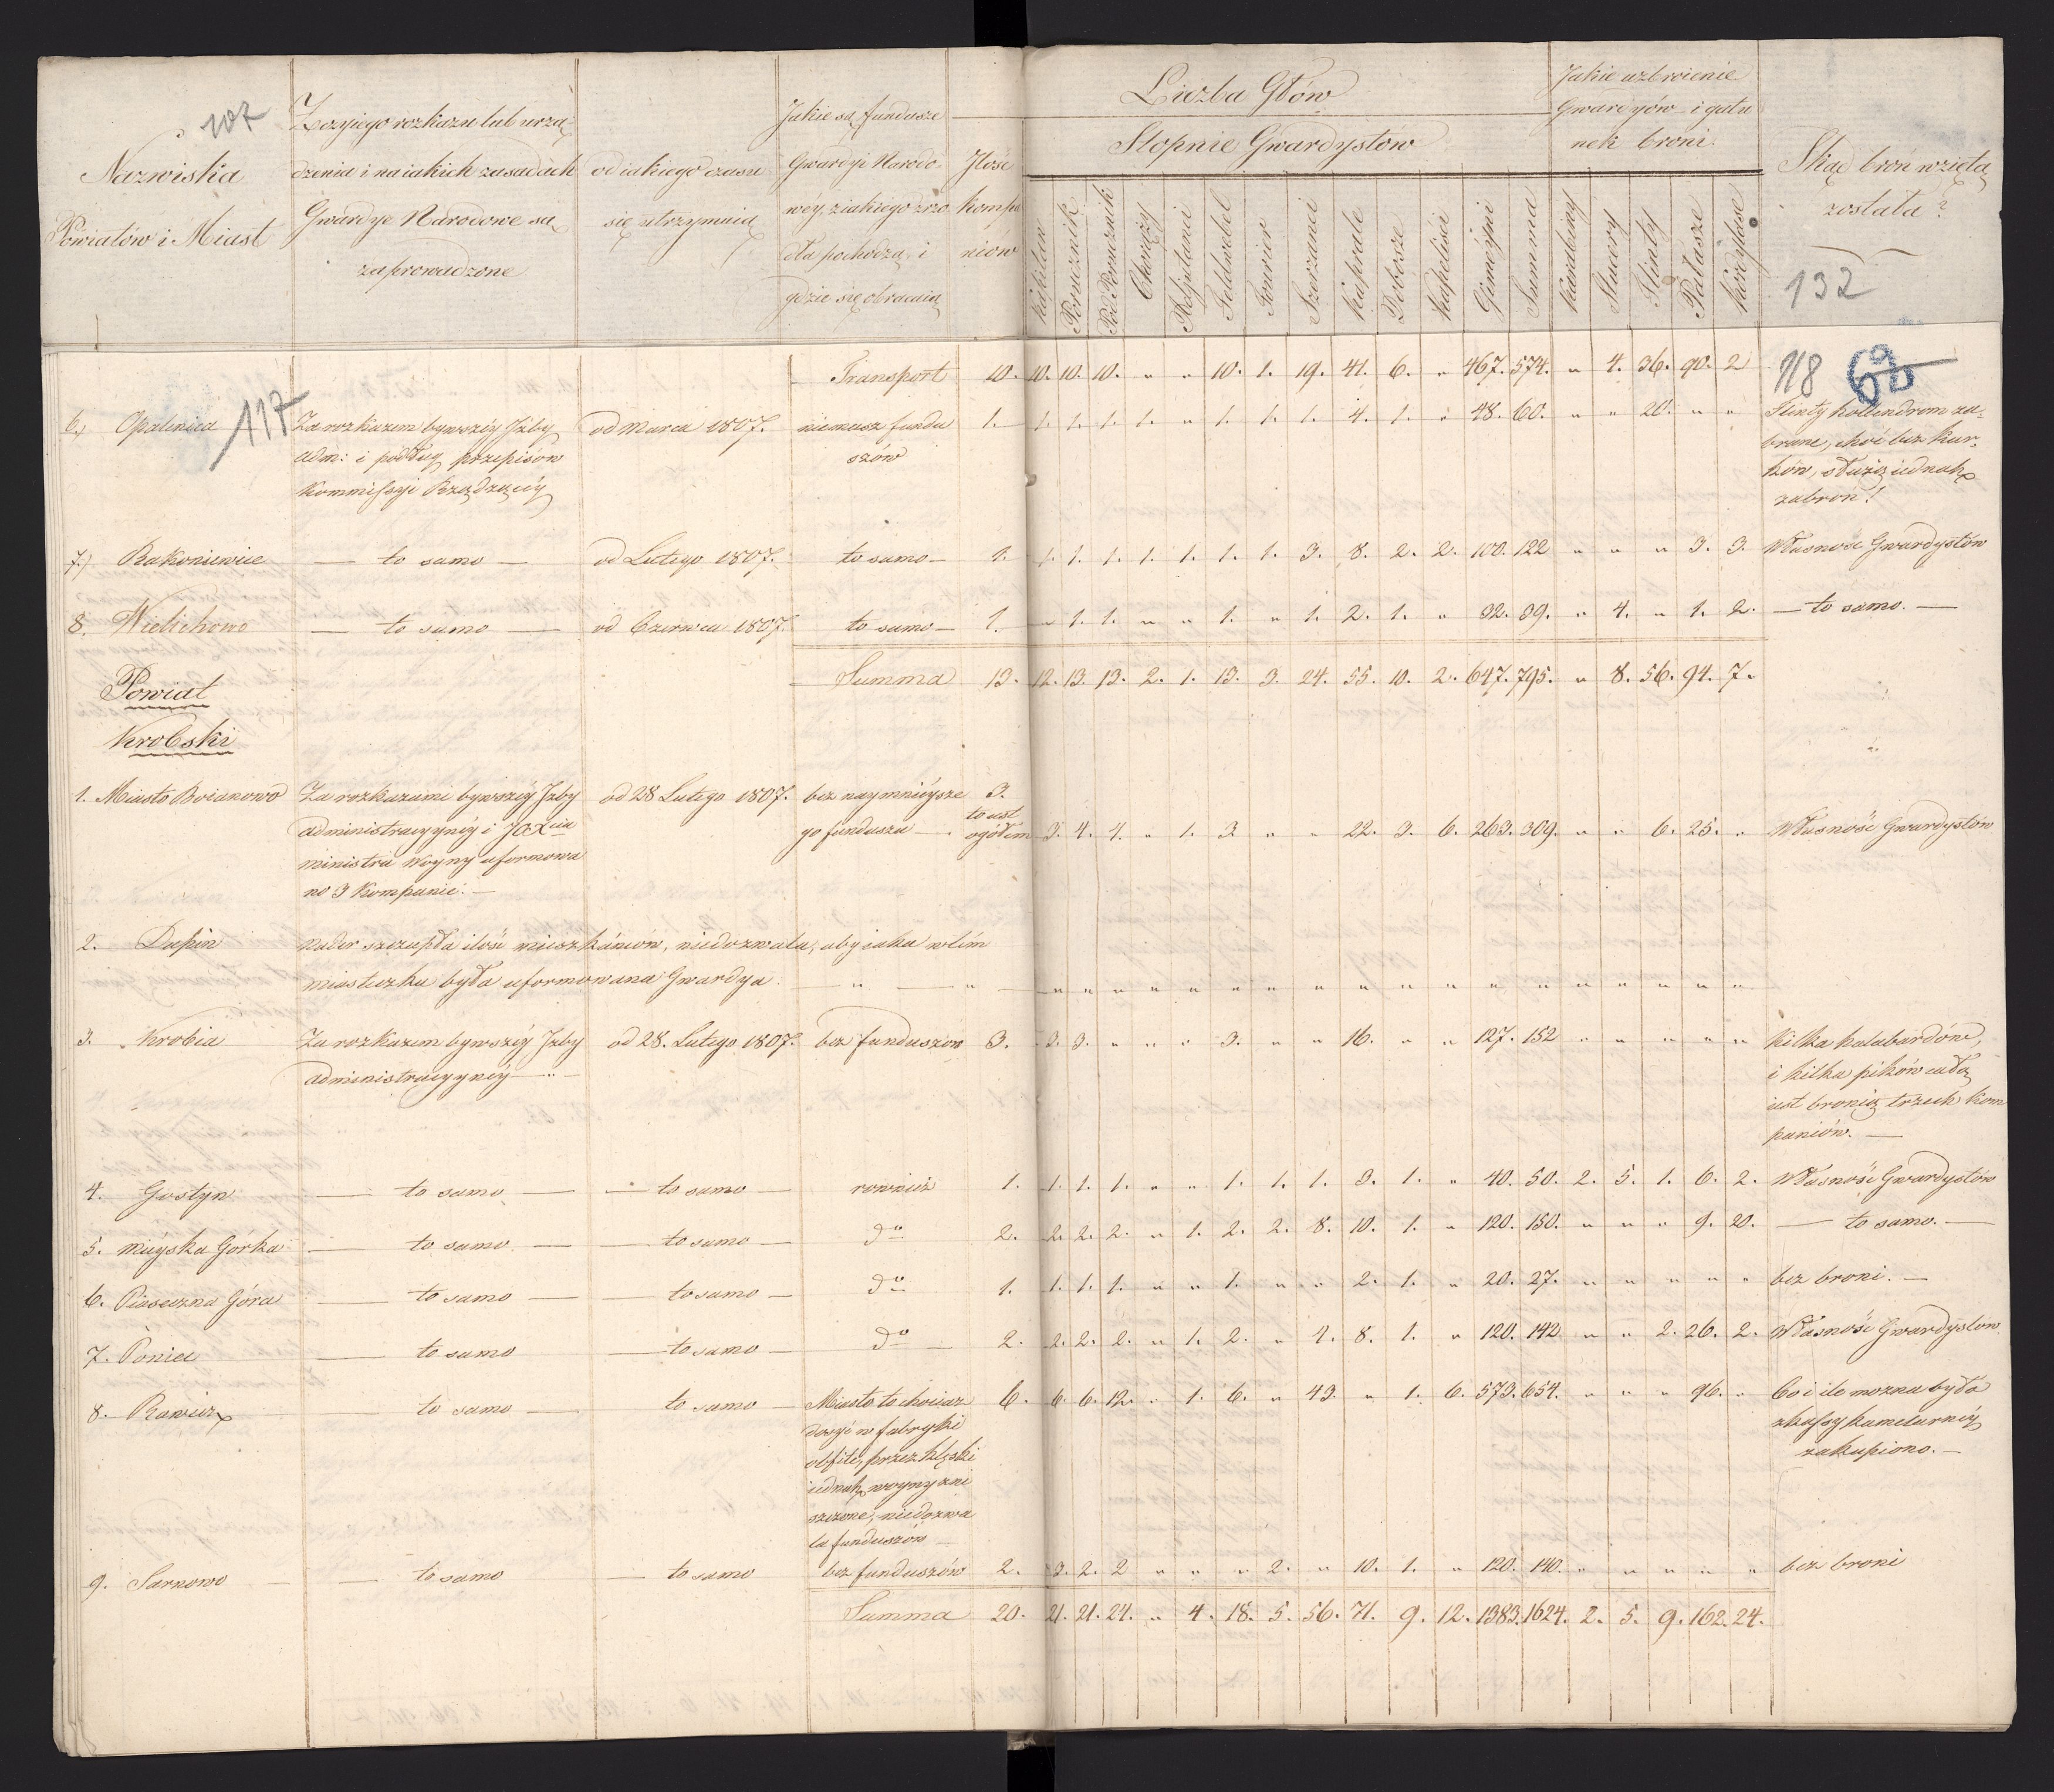 107
Nazwiska
Powiatów i Miast
Z czyjego rozkazu lub urzą-
dzenia i na iakich zasadach
Gwardye Narodowe są
zaprowadzone
od iakiego czasu
się utrzymuią
Jakie są fundusze
Gwardyi Narodo-
wey, z iakiego zrzo
dła pochodzą, i
gdzie się obracaią
Ilość
kompa
niów
Liczba Głów
Stopnie Gwardystów
Kapitan
Porucznik
Pod Porucznik
Chorąży
Adjutanci
Feldwebel
Fourier
Szerżanci
Kaprale
Dobosze
Kapeliści
Gimeyni
Summa
Jakie uzbroienie
Gwardyów i gatu
nek broni
Karabiny
Stucery
Flinty
Pałasze
Kordylase
Skąd broń wzięta
została?
132
Transport 10. 10. 10. 10. " " 10. 1. 19. 41. 6. " 467. 574. " 4. 36. 90. 2
118 60
117
6.) Opalenica Za rozkazem bywszéy Jzby od Marca 1807. niemasz fundu 1. 1. 1. 1. 1. " 1. 1. 1. 4. 1. " 48. 60. " " 20. " " Flinty hollendrom za-
adm: i podług przepisów szów brane, choć bez kur-
Kommissyi Rządzącéy ków, służą iednak
za broń!
7.) Rakoniewice — to samo — od Lutego 1807. to samo — 1. 1. 1. 1. 1. 1. 1. 1. 3. 8. 2. 2. 100. 122 " " " 3. 3. Własność Gwardystów
8. Wielichowo — to samo — od Czerwca 1807. to samo — 1. " 1. 1. " " 1. " 1. 2. 1. " 32. 39. " 4. " 1. 2. — to samo. —
Summa 13. 12. 13. 13. 2. 1. 13. 3. 24. 55. 10. 2. 647. 795. " 8. 56. 94. 7.
Powiat
Krobski
1. Miasto Boianowo Za rozkazami bywszéy Jzby od 28 Lutego 1807. bez naymnieysze 3.
administracyynéy i JOXcia go funduszu — to iest ogółem 3. 4. 4. " 1. 3. " " 22. 3. 6. 263. 309. " " 6. 25. " Własność Gwardystów
ministra Woyny uformowa
no 3 Kompanie. —
2. Dupin Nader szczupła ilość mieszkańców, niedozwala, aby iaka w tém
miasteczku była uformowana Gwardya. — " — " — " " " " " " " " " " " " " " " " " "
3. Krobia Za rozkazem bywszéy Jzby od 28. Lutego 1807. bez funduszów 3. 3. 3. " " " 3. " " 16. " " 127. 152 " " " " " Kilka halabardów,
administracyynéy — " — i kilka pików całą
iest bronią trzech kom
paniów. —
4. Gostyn — to samo — — to samo — rownież 1. 1. 1. 1. " " 1. 1. 1. 3. 1. " 40. 50. 2. 5. 1. 6. 2. Własność Gwardystów
5. Mieyska Górka — to samo — — to samo — do 2. 2. 2. 2. " 1. 2. 2. 8. 10. 1. " 120. 150. " " " 9. 20. — to samo. —
6. Piaseczna Góra — to samo — — to samo — do 1. 1. 1. 1. " " 1. " " 2. 1. " 20. 27. " " " " " bez broni. —
7. Poniec — to samo — to samo — do — 2. 2. 2. 2. " 1. 2. " 4. 8. 1. " 120. 142 " " 2. 26. 2. Własność Gwardystow
8. Rawicz — to samo — to samo — Miasto to chociaz 6. 6. 6. 12. " 1. 6. " 43. " 1. 6. 573. 654. " " " 96. " Co i ile mozna było
dosyć w fabryki z kassy kamelarnéy
obfite, przez klęski zakupiono. —
iednak woyny zni
szczone, niedozwa
la funduszów —
9. Sarnowo — to samo — to samo bez funduszów 2. 3. 2. 2 " " " 2. " 10. 1. " 120. 140. " " " " " bez broni
Summa 20. 21. 21. 24. " 4. 18. 5. 56. 71. 9. 12. 1383. 1624. 2. 5. 9. 162. 24.